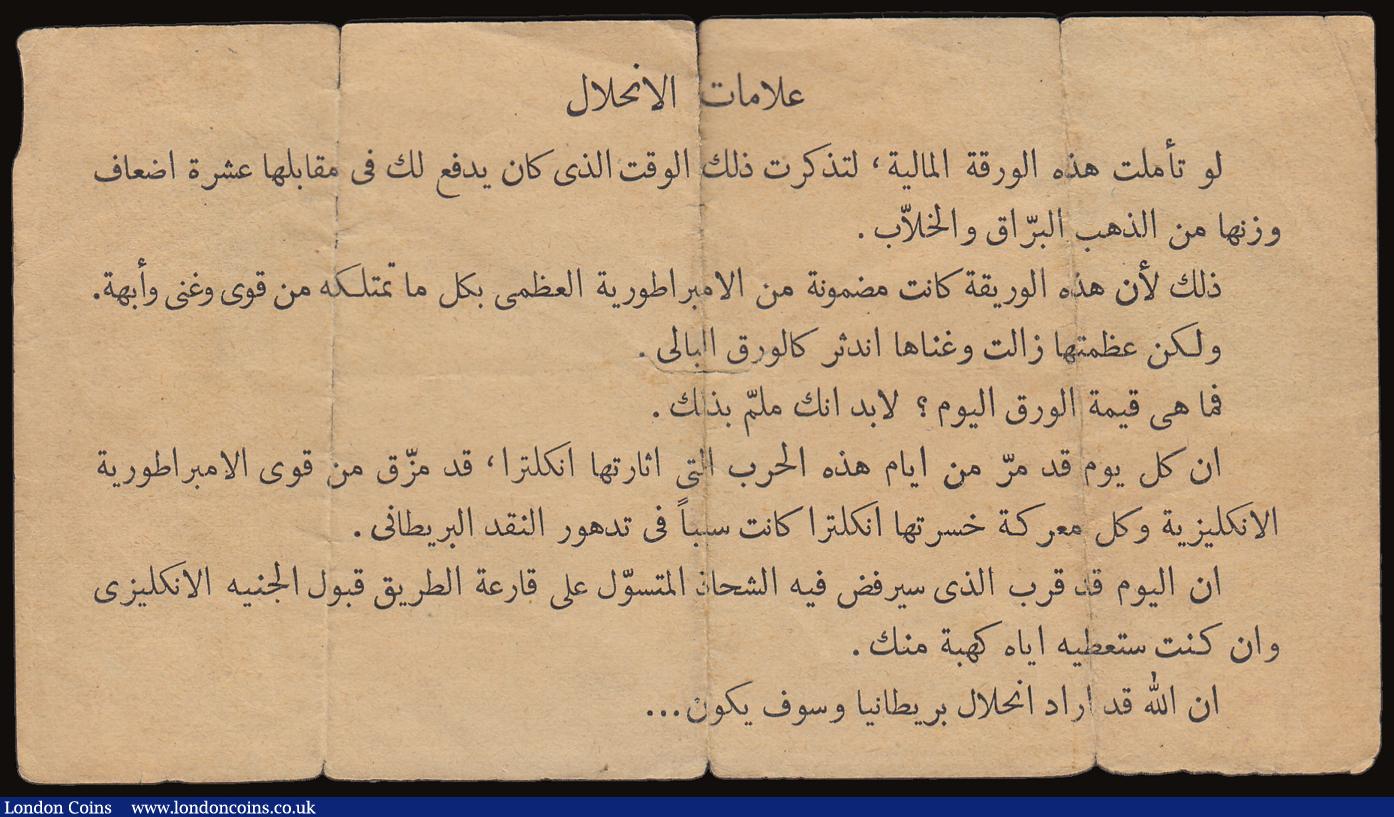 علامات الانحلال
لو تأملت هذه الورقة المالية، لتذكرت ذلك الوقت الذى كان يدفع لك فى مقابلها عشرة اضعاف
وزنها من الذهب البرّاق والخلاّب .
ذلك لأن هذه الوريقة كانت مضمونة من الامبراطورية العظمى بكل ما تمتلكه من قوى وغنى وأبهة.
ولكن عظمتها زالت وغناها اندثر كالورق البالى .
فما هى قيمة الورق اليوم ؟ لابد انك ملمّ بذلك .
ان كل يوم قد مرّ من ايام هذه الحرب التى اثارتها انكلترا، قد مزّق من قوى الامبراطورية
الانكليزية وكل معركة خسرتها انكلترا كانت سبباً فى تدهور النقد البريطانى .
ان اليوم قد قرب الذى سيرفض فيه الشحاذ المتسوّل على قارعة الطريق قبول الجنيه الانكليزى
وان كنت ستعطيه اياه كهبة منك .
ان الله قد اراد انحلال بريطانيا وسوف يكون...
London Coins www.londoncoins.co.uk